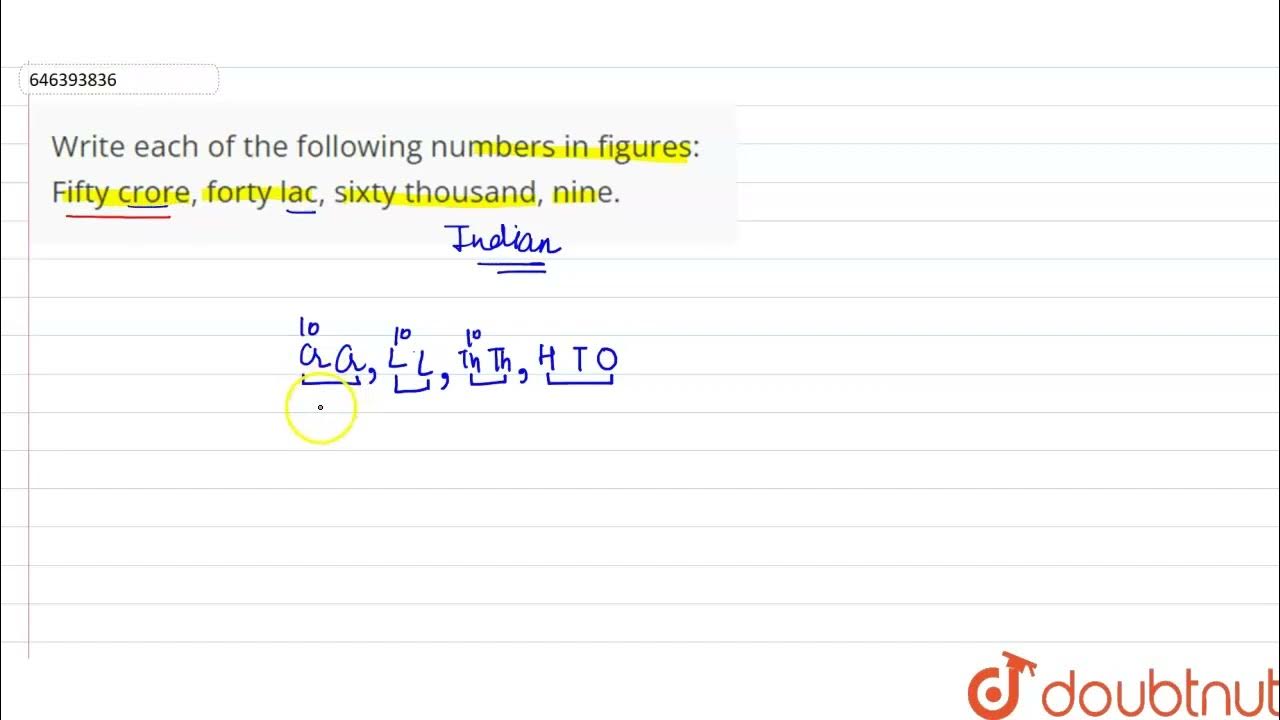 646393836
Write each of the following numbers in figures:
Fifty crore, forty lac, sixty thousand, nine.
Indian
10 10 10
Cr Cr, L L, Th Th, H T O
doubtnut